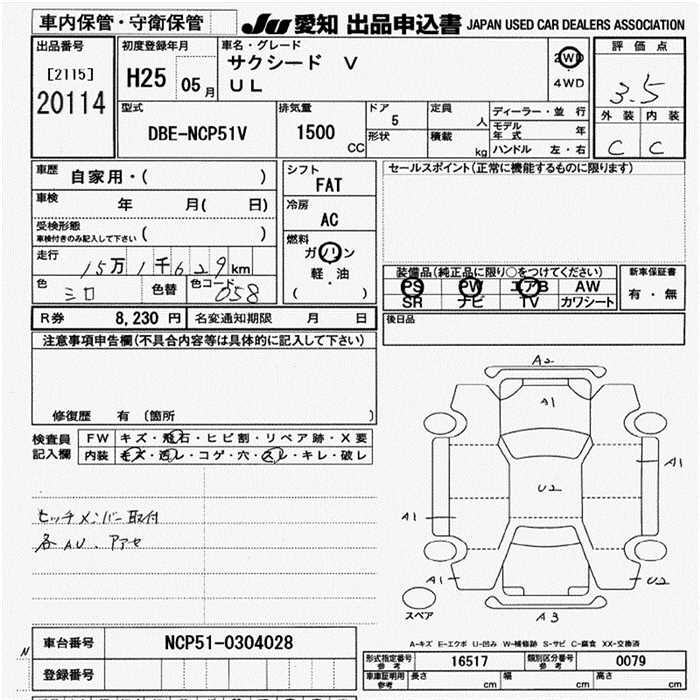 車内保管・守衛保管
JU 愛知 出品申込書 JAPAN USED CAR DEALERS ASSOCIATION
出品番号
[2115]
20114
初度登録年月
H25 05月
車名・グレード
サクシード V
UL
2WD
4WD
評価点
3.5
外装 内装
C C
型式
DBE-NCP51V
排気量
1500 CC
ドア
5
形状
定員
人
積載
kg
ディーラー・並行
モデル年式 年
ハンドル 左・右
車歴 自家用・( )
車検 年 月( 日)
受検形態
車検付きのみ記入して下さい ( )
走行 15万1千629km
色 シロ 色替 色コード 058
シフト
FAT
冷房
AC
燃料
ガソリン
軽・油
( )
セールスポイント(正常に機能するものに限ります)
装備品(純正品に限り○をつけてください)
PS PW エアB AW
SR ナビ TV カワシート
新車保証書
有・無
R券 8,230円 名変通知期限 月 日
後日品
注意事項申告欄(不具合内容等は具体的に記入して下さい)
修復歴 有 (箇所 )
検査員記入欄
FW キズ・飛石・ヒビ割・リペア跡・X要
内装 キズ・汚レ・コゲ・穴・スレ・キレ・破レ
ヒッチメンバー取付
各AU、アアセ
A2
A1
A1
U2
A1
A1
U2
A3
スペア
A-キズ E-エクボ U-凹み W-補修跡 S-サビ C-腐食 XX-交換済
N
車台番号 NCP51-0304028
登録番号
型式指定番号 参考 16517 類別区分番号 参考 0079
車庫証明用 参考 長さ cm 幅 cm 高さ cm